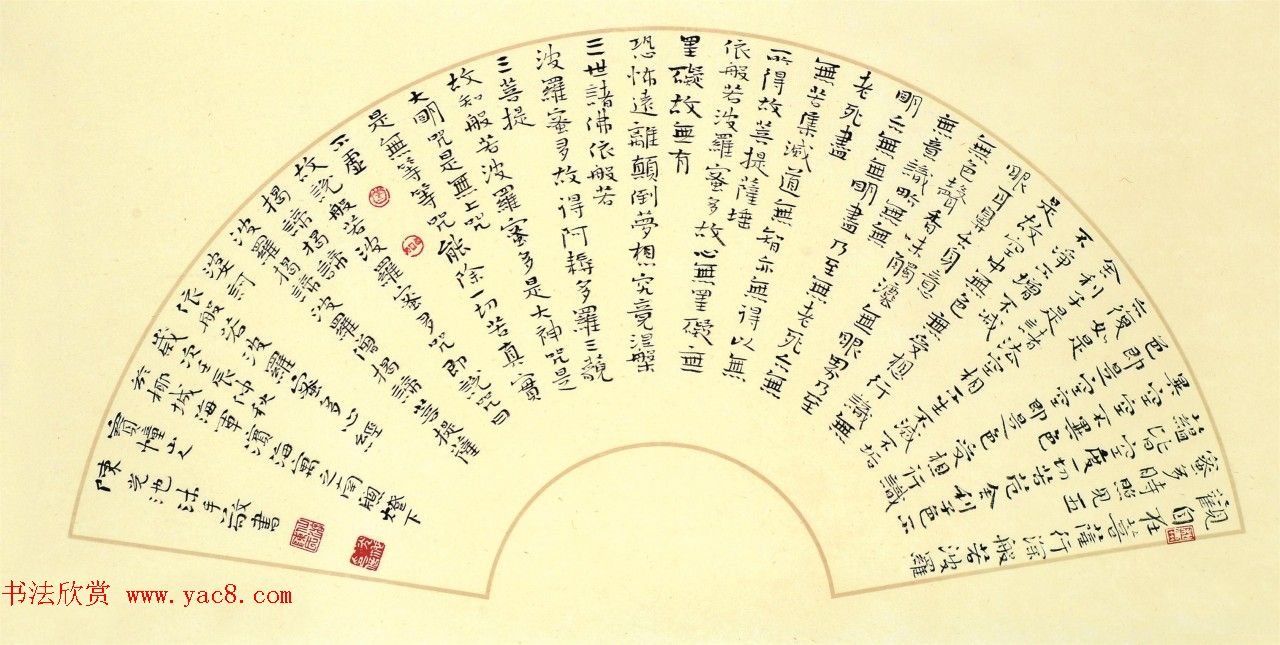 觀自
在菩薩行深般若波羅
蜜多時照見五
蘊皆空度一切苦厄舍利子色不
異空空不異色
色即是空空即是色受想行識
亦復如是
舍利子是諸法空相不生不滅不垢
不淨不增不減
是故空中無色無受想行識無
眼耳鼻舌身意
無色聲香味觸法無眼界乃至
無意識界無無
明亦無無明盡乃至無老死亦無
老死盡
無苦集滅道無智亦無得以無
所得故菩提薩埵
依般若波羅蜜多故心無罣礙無
罣礙故無有
恐怖遠離顛倒夢想究竟涅槃
三世諸佛依般若
波羅蜜多故得阿耨多羅三藐
三菩提
故知般若波羅蜜多是大神咒是
大明咒是無上咒
是無等等咒能除一切苦真實
不虛
故説般若波羅蜜多咒即説咒曰
揭諦揭諦
波羅揭諦波羅僧揭諦菩提薩
婆訶
依般若波羅蜜多心經
歲次壬辰仲秋
柳城海軍濱海寓之南窗燈下
寶憧
陳沐手敬書
书法欣赏 www.yac8.com